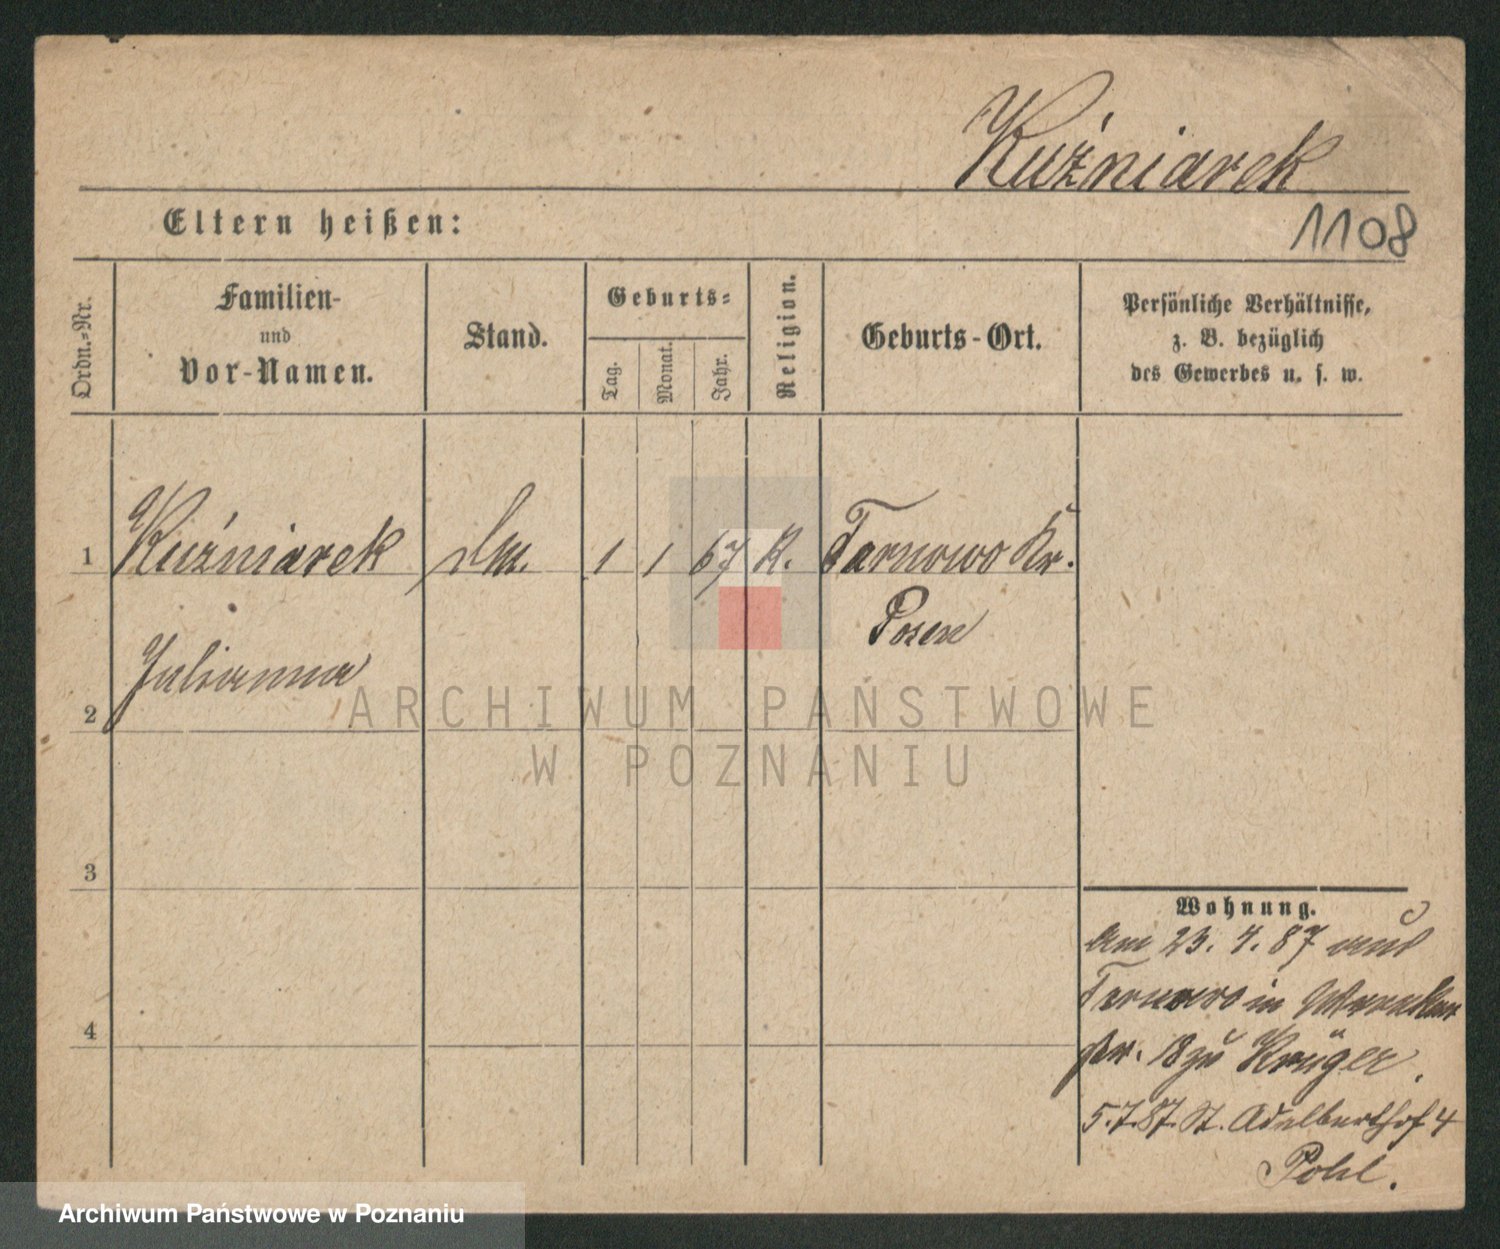 Kuźniarek
Eltern heißen:
1108
Ordn.-Nr.
Familien-
und
Vor-Namen.
Stand.
Geburts-
Tag.
Monat.
Jahr.
Religion.
Geburts-Ort.
Persönliche Verhältnisse,
z. B. bezüglich
des Gewerbes u. s. w.
1 Kuźniarek dM. 1 1 67 K. Tarnowo Kr.
Posen
Julianna
2
3
4
Wohnung.
am 23. 4. 87 aus
Tarnowo in
Str. 18 zu Krüger.
5.7.87. St. Adalberthof 4
Pohl.
ARCHIWUM PAŃSTWOWE
W POZNANIU
Archiwum Państwowe w Poznaniu